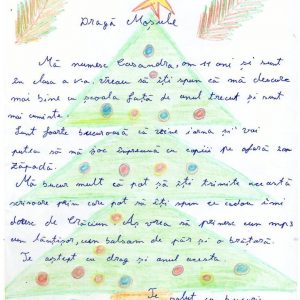 Dragă Moșule
Mă numesc Casandra, am 11 ani și sunt
în clasa a v-a, vreau să îți spun că mă descurc
mai bine cu școala față de anul trecut și sunt
mai cuminte.
Sunt foarte bucuroasă că vine iarna și voi
putea să mă joc împreună cu copiii pe afară în
zăpadă.
Mă bucur mult că pot să îți trimite această
scrisoare prin care pot să îți spun ce cadou îmi
doresc de Crăciun. Aș vrea să primesc un mp3
un lănțișor, un balsam de păr și o brățară.
Te aștept cu drag și anul acesta
Te salut cu bucurie